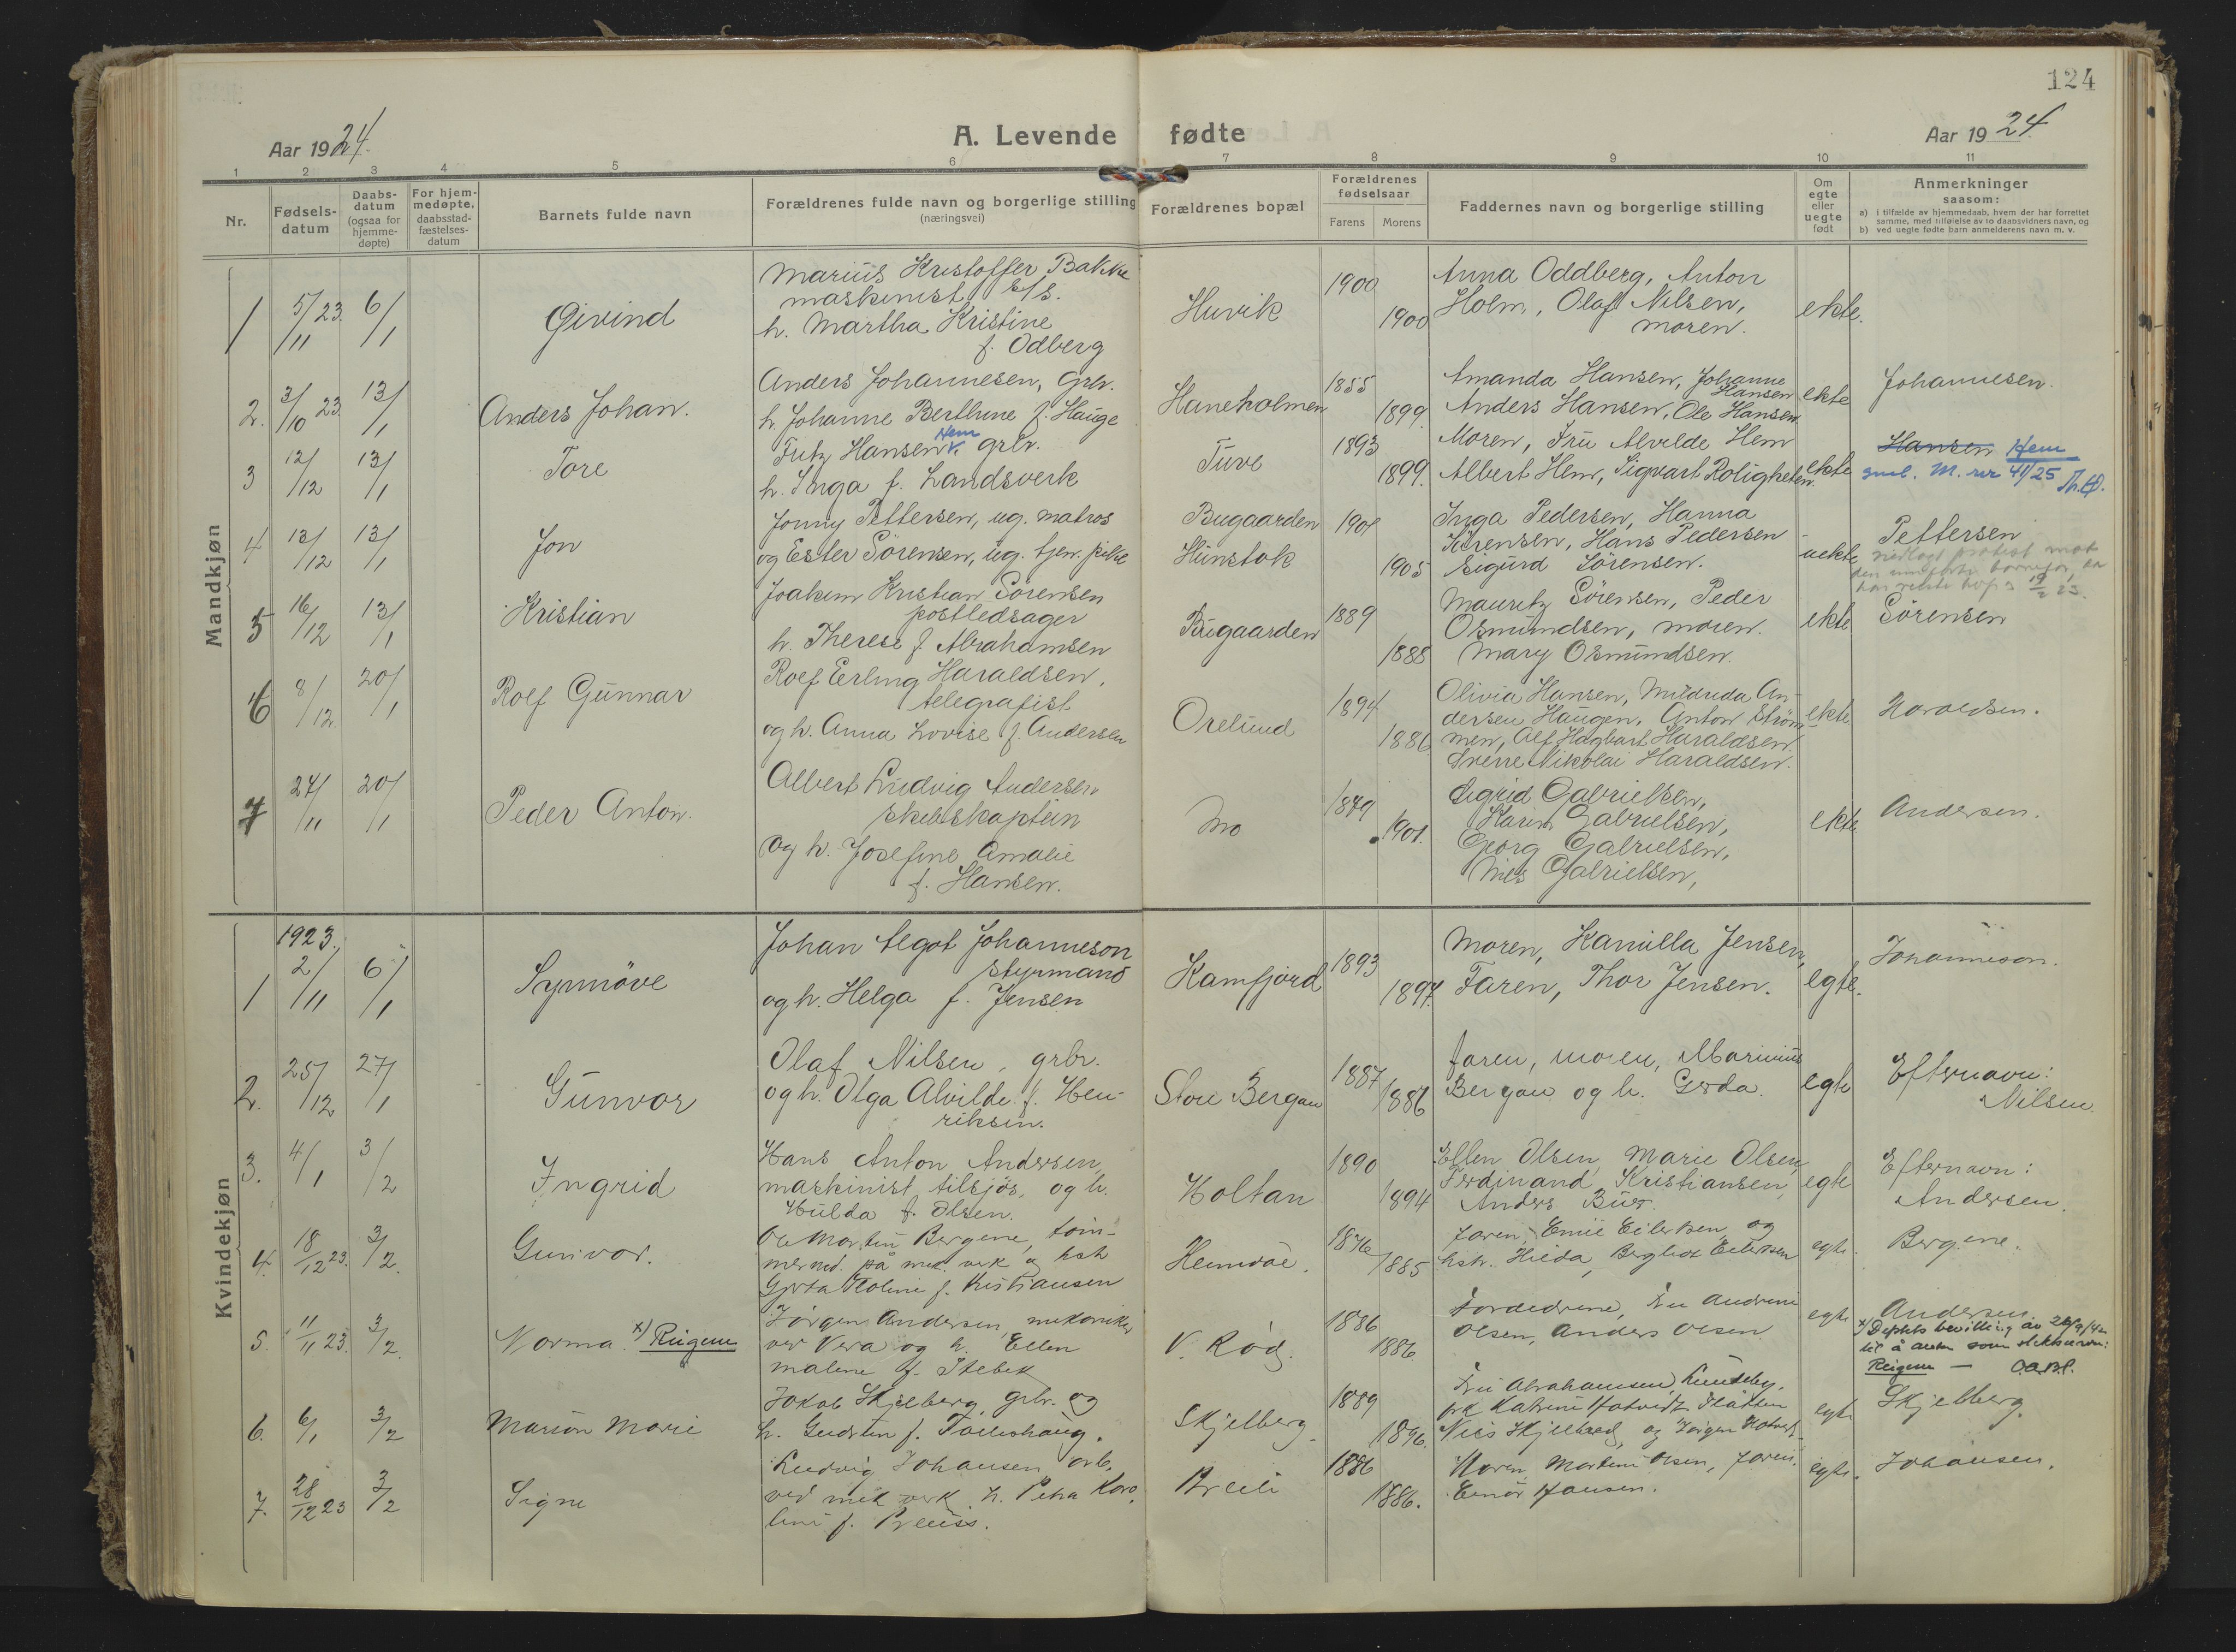 124
Aar 1924.
A. Levende fødte
Aar 1924
1 2 3 4 5 6 7 8 9 10 11
Nr.
Fødsels-
datum
Daabs-
datum
(ogsaa for
hjemme-
døpte)
For hjem-
medøpte,
daabsstad-
fæstelses-
datum
Barnets fulde navn
Forældrenes fulde navn og borgerlige stilling
(næringsvei)
Forældrenes bopæl
Forældrenes
fødselsaar
Farens Morens
Faddernes navn og borgerlige stilling
Om
egte
eller
uegte
født
Anmerkninger
saasom:
a) i tilfælde av hjemmedaab, hvem der har forrettet
samme, med tilføielse av to daabsvidners navn, og
b) ved uegte fødte barn anmelderens navn m. v.
Mandkjøn
1 5/11 23. 6/1
Øivind
Marius Kristoffer Bakke
maskinist
h. Martha Kristine
f. Odberg
Huvik
1900
1900
Anna Oddberg, Anton
Holm, Olaf Nilsen,
moren.
ekte.
2. 3/10 23. 13/1
Anders Johan.
Anders Johannesen, grbr.
h. Johanne Berthine f. Hauge
Haneholmen
1855
1899.
Amanda Hansen, Johanne
Hansen
Anders Hansen, Ole Hansen.
ekte
Johannesen.
3 12/12 13/1
Tore
Fritz Hansen Hem grbr.
h. Inga f. Landsverk
Tuve
1893
1899.
Moren, Fru Alvilde Hem
Albert Hem, Sigvart Roligheten.
ekte
Hansen Hem
gml. M. nr 41/25 Th.
4 13/12 13/1
Jon
Jonny Pettersen, ug. matros
og Ester Sørensen, ug. tjen. pike
Bugaarden
Hunstok
1901
1905
Inga Pedersen, Hanna
Sørensen, Hans Pedersen
Sigurd Sørensen.
uekte
Pettersen
5 16/12 13/1
Kristian
Joakim Kristian Sørensen
postledsager
h. Therese f. Abrahamsen
Bugaarden
1889
1888
Mauritz Sørensen, Peder
Osmundsen, moren.
Mary Osmundsen.
ekte
Sørensen
6 8/12 20/1
Rolf Gunnar
Rolf Erling Haraldsen,
telegrafist
og h. Anna Lovise f. Andersen
Orelund
1894
1886
Olivia Hansen, Mildrida An-
dersen Haugen, Anton Strøm-
men, Alf Hagbart Haraldsen.
Sverre Nikolai Haraldsen.
ekte
Haraldsen.
7 24/11 20/1
Peder Anton.
Albert Ludvig Andersen
skibskaptein
og h. Josefine Amalie
f. Hansen.
Mo
1879
1901.
Sigrid Gabrielsen,
Karen Gabrielsen,
Georg Gabrielsen,
Nils Gabrielsen,
ekte
Andersen.
Kvindekjøn
1923.
1 2/11 6/1
Synnöve
Johan Algot Johanneson
styrmand
og h. Helga f. Jensen
Kamfjord
1893
1897.
Moren, Kamilla Jensen,
Faren, Thor Jensen.
egte.
Johanneson.
2. 25/12 27/1
Gunvor
Olaf Nilsen, grbr.
og h. Olga Alvilde f. Hen-
riksen.
Store Bergan
1887
1886
faren, moren, Marinius
Bergan og h. Gerda.
egte
Efternavn:
Nilsen.
3. 4/1 3/2
Ingrid
Hans Anton Andersen,
maskinist tilsjøs, og h.
Hulda f. Olsen.
Holtan
1890
1894
Ellen Olsen, Marie Olsen,
Ferdinand Kristiansen,
Anders Buer.
egte
Efternavn:
Andersen.
4. 18/12 23. 3/2.
Gunvor.
Ole Martin Bergene, tøm-
mermd. på mek. verk og hstr
Gjerta Koline f. Kristiansen
Hemsøe.
1876
1885
Faren, Emil Eilertsen, og
hstr. Hilda, Bergliot Eilertsen
egte.
Bergene.
5. 11/11 23. 3/2.
Norma. x) Reigem
Jörgen Andersen, mekaniker
ved Vera og h. Ellen
Maline f. Stebek
V. Rød.
1886
1886
Foreldrene, Fru Andrine
Olsen, Anders Olsen
egte
Andersen.
x) Depts bevilling av 26/9/42
til å anta som slektsnavn:
Reigem — O.A.Bl.
6. 6/1 3/2
Marion Marie
Jakob Skjelberg, grbr. og
h. Gudrun f. Tollershaug.
Skjelberg.
1889
1896.
Fru Abrahamsen, Lundeby,
frk Katrine Hotvedt Flåtten
Nils Skjelbred, og Jörgen Hotvedt.
egte
Skjelberg.
7. 28/12 23 3/2
Signe
Ludvig Johansen arb.
ved mek verk. h. Petra Karo-
line f. Preuss.
Breili
1886
1886.
Moren, Martini Olsen, faren.
Einar Hansen.
egte.
Johansen.